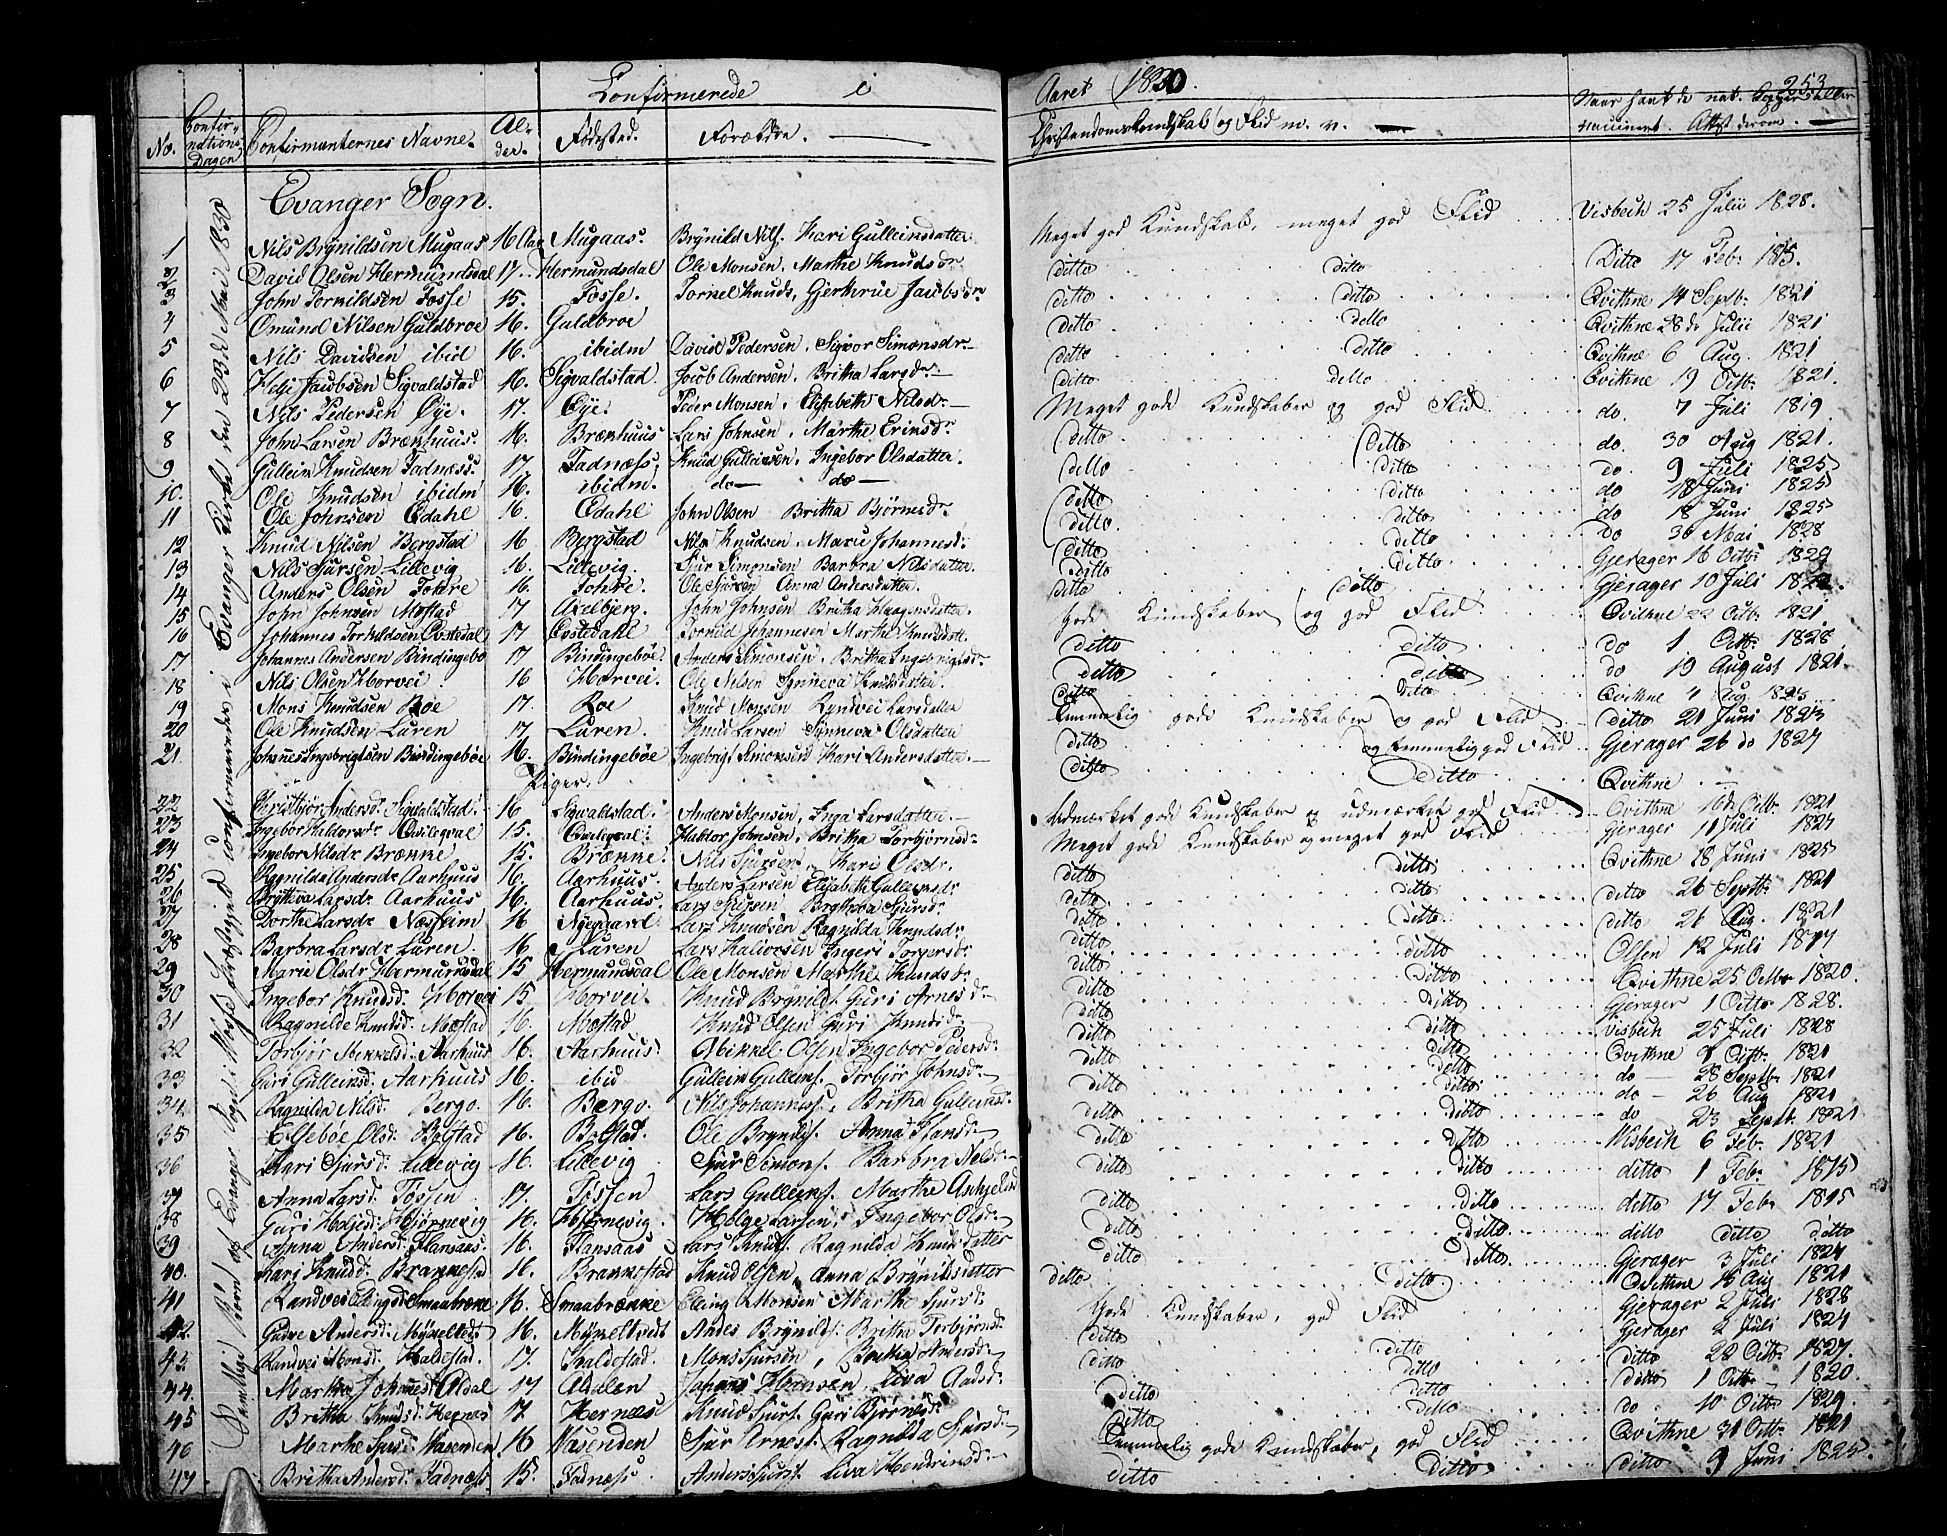 Confirmerede i
Aaret 1830.
253
No. Confir-nations Dagen Confirmanternes Navne. Al-der. Fødested. Forældre.
Christendomskundskab og Flid m. v.
Naar havt de nat. Kopper eller vaccineret. Attest derom.
Samtlige Børn af Evanger Sogn i Præstegjeld confirmerede i Evanger Kirke den 1830
Evanger Sogn.
1 Nils Brynildsen Mugaas 16 Aar Mugaas. Brynild Nils. Kari Gulleinsdatter Meget god Kundskab, meget god Flid Visbech 25 Julii 1828.
2 David Olsen Hermundsdal 17. Hermundsdal Ole Monsen. Marthe Knudsdr ditto ditto Ditto 17 Feb.
3 John Tornildsen Fosse 15. Fosse. Tornel Knuds, Gjertrue Jacobsdr ditto ditto Qvithne 14 Septbr 1821
4 Omund Nilsen Guldbroe 16. Guldbroe ditto ditto Qvithne 28de Julii 1821
5 Nils Davidsen ibid 16. ibidm David Pedersen. Sigvor Simonsdr ditto ditto Qvithne 6 Aug. 1821
6 Helje Jacobsen Sigvaldstad 16. Sigvaldstad. Jacob Andersen. Britha Larsdr ditto ditto Qvithne 19 Octbr 1821.
7 Nils Pedersen Øye. 17. Øye. Peder Monsen. Elisabeth Nilsdr Meget gode Kundskaber og god Flid do. 7 Juli 1819
8 John Larsen Brækhuus. 16. Brækhuus Lars Johnsen. Marthe Erinsdr ditto Ditto do. 30 Aug 1821.
9 Gullein Knudsen Fadnæss. 17 Fadnæss. Knud Gulleinsen. Ingebor Olsdatter. ditto ditto do. 9 Juli 1825
10. Ole Knudsen ibidm 16. ibidm. do do ditto ditto do 18 Juni 1825
11 Ole Johnsen Edahl 16 Edahl John Olsen Britha Bjørnsdr ditto ditto do 18 Juni 1825
12 Knud Nilsen Bergstad 16 Bergstad Nils Knudsen. Marie Johannesd. ditto ditto Do 30 Mai 1828
13 Nils Sjursen Lillevig 16. Lillevig. Sjur Simonsen Barbra Nilsdatter ditto ditto Gjerager 16 Octbr
14 Anders Olsen Tokre 16. Tokre. Ole Sjursen Anna Andersdatter ditto ditto Gjerager 10 Juli
15 John Johnsen Mæstad 17 Axelberg. John Johnsen Britha Haagensdatter gode Kundskaber og god Flid Qvithne 22 Octbr 1821.
16 Johannes Torkildsen Evstedal 17 Evstedahl Tornild Johannesen Marthe Knudsdatt. ditto ditto do 1 Octbr 1828.
17 Johannes Andersen Bindingebø 17 Bindingebøe. Anders Simonsen. Britha Ingebrigtsdr ditto ditto do 19 August 1821.
18 Nils Olsen Horvei 16 Horvei. Ole Nilsen Synneva Knudsdatter. ditto ditto Qvithne Aug.
19 Mons Knudsen Roe 17. Roe Knud Monsen Ryndvei Larsdatter Temmelig gode Kundskaber og god Flid ditto 21 Juni 1823
20 Ole Knudsen Luren 17 Luren. Knud Larsen Synneva Olsdatter ditto og temmelig god Flid Gjerager 26 do 1827
21. Johannes Ingebrigtsen Bindingebøe 16. Bindingebøe Ingebrigt Simonsen Kari Andersdatter. ditto Ditto Qvithne
Piger.
22 Christbjør Andersdr Sigvaldstad 16 Sigvaldstad. Anders Monsen, Inga Larsdatter. Udmærket gode Kundskaber og udmærket god Flid Qvithne 16de Octbr 1821
23 Ingebor Haldorsdr Qvileqval 15. Qvileqval. Haldor Johnsen, Britha Torbjørnsdr Meget gode Kundskaber og meget god Flid Gjerager 11 Juli 1827
24 Ingebor Nilsdr Brænne 15. Brænne. Nils Sjursen, Kari Olsdr. ditto ditto Qvithne 18 Juni 1825
25 Ragnilda Andersdr Aarhuus 16. Aarhuus. Anders Larsen Elisabeth Gulleinsdr ditto ditto ditto 26 Septbr 1821
26 Brytteva Larsdr Aarhuus 16. Aarhuus. Lars Sjursen Brytteva Sjursdr ditto ditto ditto 26 Aug. 1821
27 Dorthe Larsdr Næsheim 16 Nyegaard Lars Knudsen Ragnilda Knudsdr ditto ditto Olsen 12 Juli
28 Barbra Larsdr Luren. 16 Luren Lars Halvorsen Ingeri Torgersdr ditto ditto Qvithne 25 Octbr 1820.
29 Marie Olsdr Hermundsdal 15 Hermundsdal Ole Monsen Marthe Knudsdr ditto ditto Gjerager 1 Octbr 1828.
30 Ingebor Knudsd. Horvei 15 Horvei. Knud Brynilds. Guri Arnesdr ditto ditto Visbech 25 Juli 1828
31 Ragnilde Knudsd. Mæstad 16. Mæstad Knud Olsen Guri Knudsdr ditto ditto Qvithne 8 Octbr 1821
32 Torbjør Mikkelsd. Aarhuus 16. Aarhuus. Mikkel Olsen Ingebor Pedersdr ditto ditto do 28 Septbr 1821
33 Guri Gulleinsd. Aarhuus 16. ibid Gullein Gulleins. Torbjør Johnsdr ditto ditto do 26 Aug 1821
34 Ragnilda Nilsd. Bergo. 16. Bergo. Nils Johanness. Britha Gulleinsdr ditto ditto do 23 Septbr 1821
35 Elsebøe Olsd. Bolstad 16. Bolstad. Ole Brynilds. Anna Hansdr ditto ditto Wisbech 6 Febr 1821
36 Kari Sjursd. Lillevig 16. Lillevig Sjur Simons. Barbra Nelsdr ditto ditto ditto 1 Febr 1815
37 Anna Larsd. Fossen 17. Fossen Lars Gulleins. Marthe ditto ditto ditto 17 Febr 1815
38 Guri Heljesd. Hjørnevig 16. Hjørnevig. Helge Larsen, Ingebor Olsdr ditto ditto ditto ditto ditto
39 Anna Andersd. Flansaas. 16. Flansaas Lars Knuds. Ragnilda Knudsdatter ditto ditto Gjerager 3 Juli 1827
40. Kari Knudsd. Brannestad 16. Brannestad Knud Olsen, Anna Brynildsdatter ditto ditto Qvithne 18 Aug 1821
41 Randvei Ellingsdr Smaabrække 16. Smaabrække Elling Monsen Marthe Sjursd. gode Kundskaber, god Flid Gjerager 2 Juli 1828
42. Gudve Andersd. Myxeltvedt 16. Myxeltvedt Andes Brynilds. Britha Torbjørnsd. ditto ditto Gjerager 2 Juli 1821
43. Randvei Monsd. Kaldestad. 17. Kaldestad. Mons Sjursen, Britha Andersd. ditto ditto ditto 28 Octbr 1827.
44. Martha Johannesd. Adal 17 Adalen Hansen, Liva ditto ditto ditto 1 Octbr 1820.
45 Britha Knudsd. Hernæs 17. Hernæs Knud Sjurs. Guri Bjørnsd. ditto ditto do. 10 Octbr 1829.
46 Marthe Sjursd. Vasenden 16 Vasenden Sjur Arnes. Ragnilda Sjursdr Temmelig gode Kundskaber, god Flid Qvithne 31 Octbr 1821
47 Britha Andersd. Fadnæss 15. Fadnæss Anders Sjurs. Liva Hendricsd. ditto ditto ditto 9 Juni 1825.